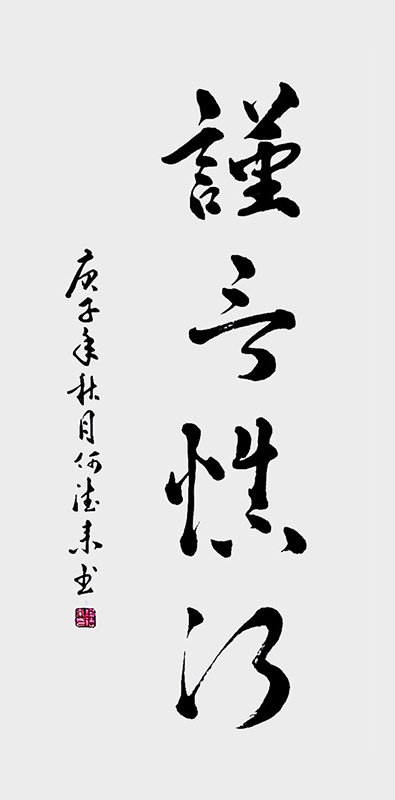 謹言慎行
庚子年秋月何德来书